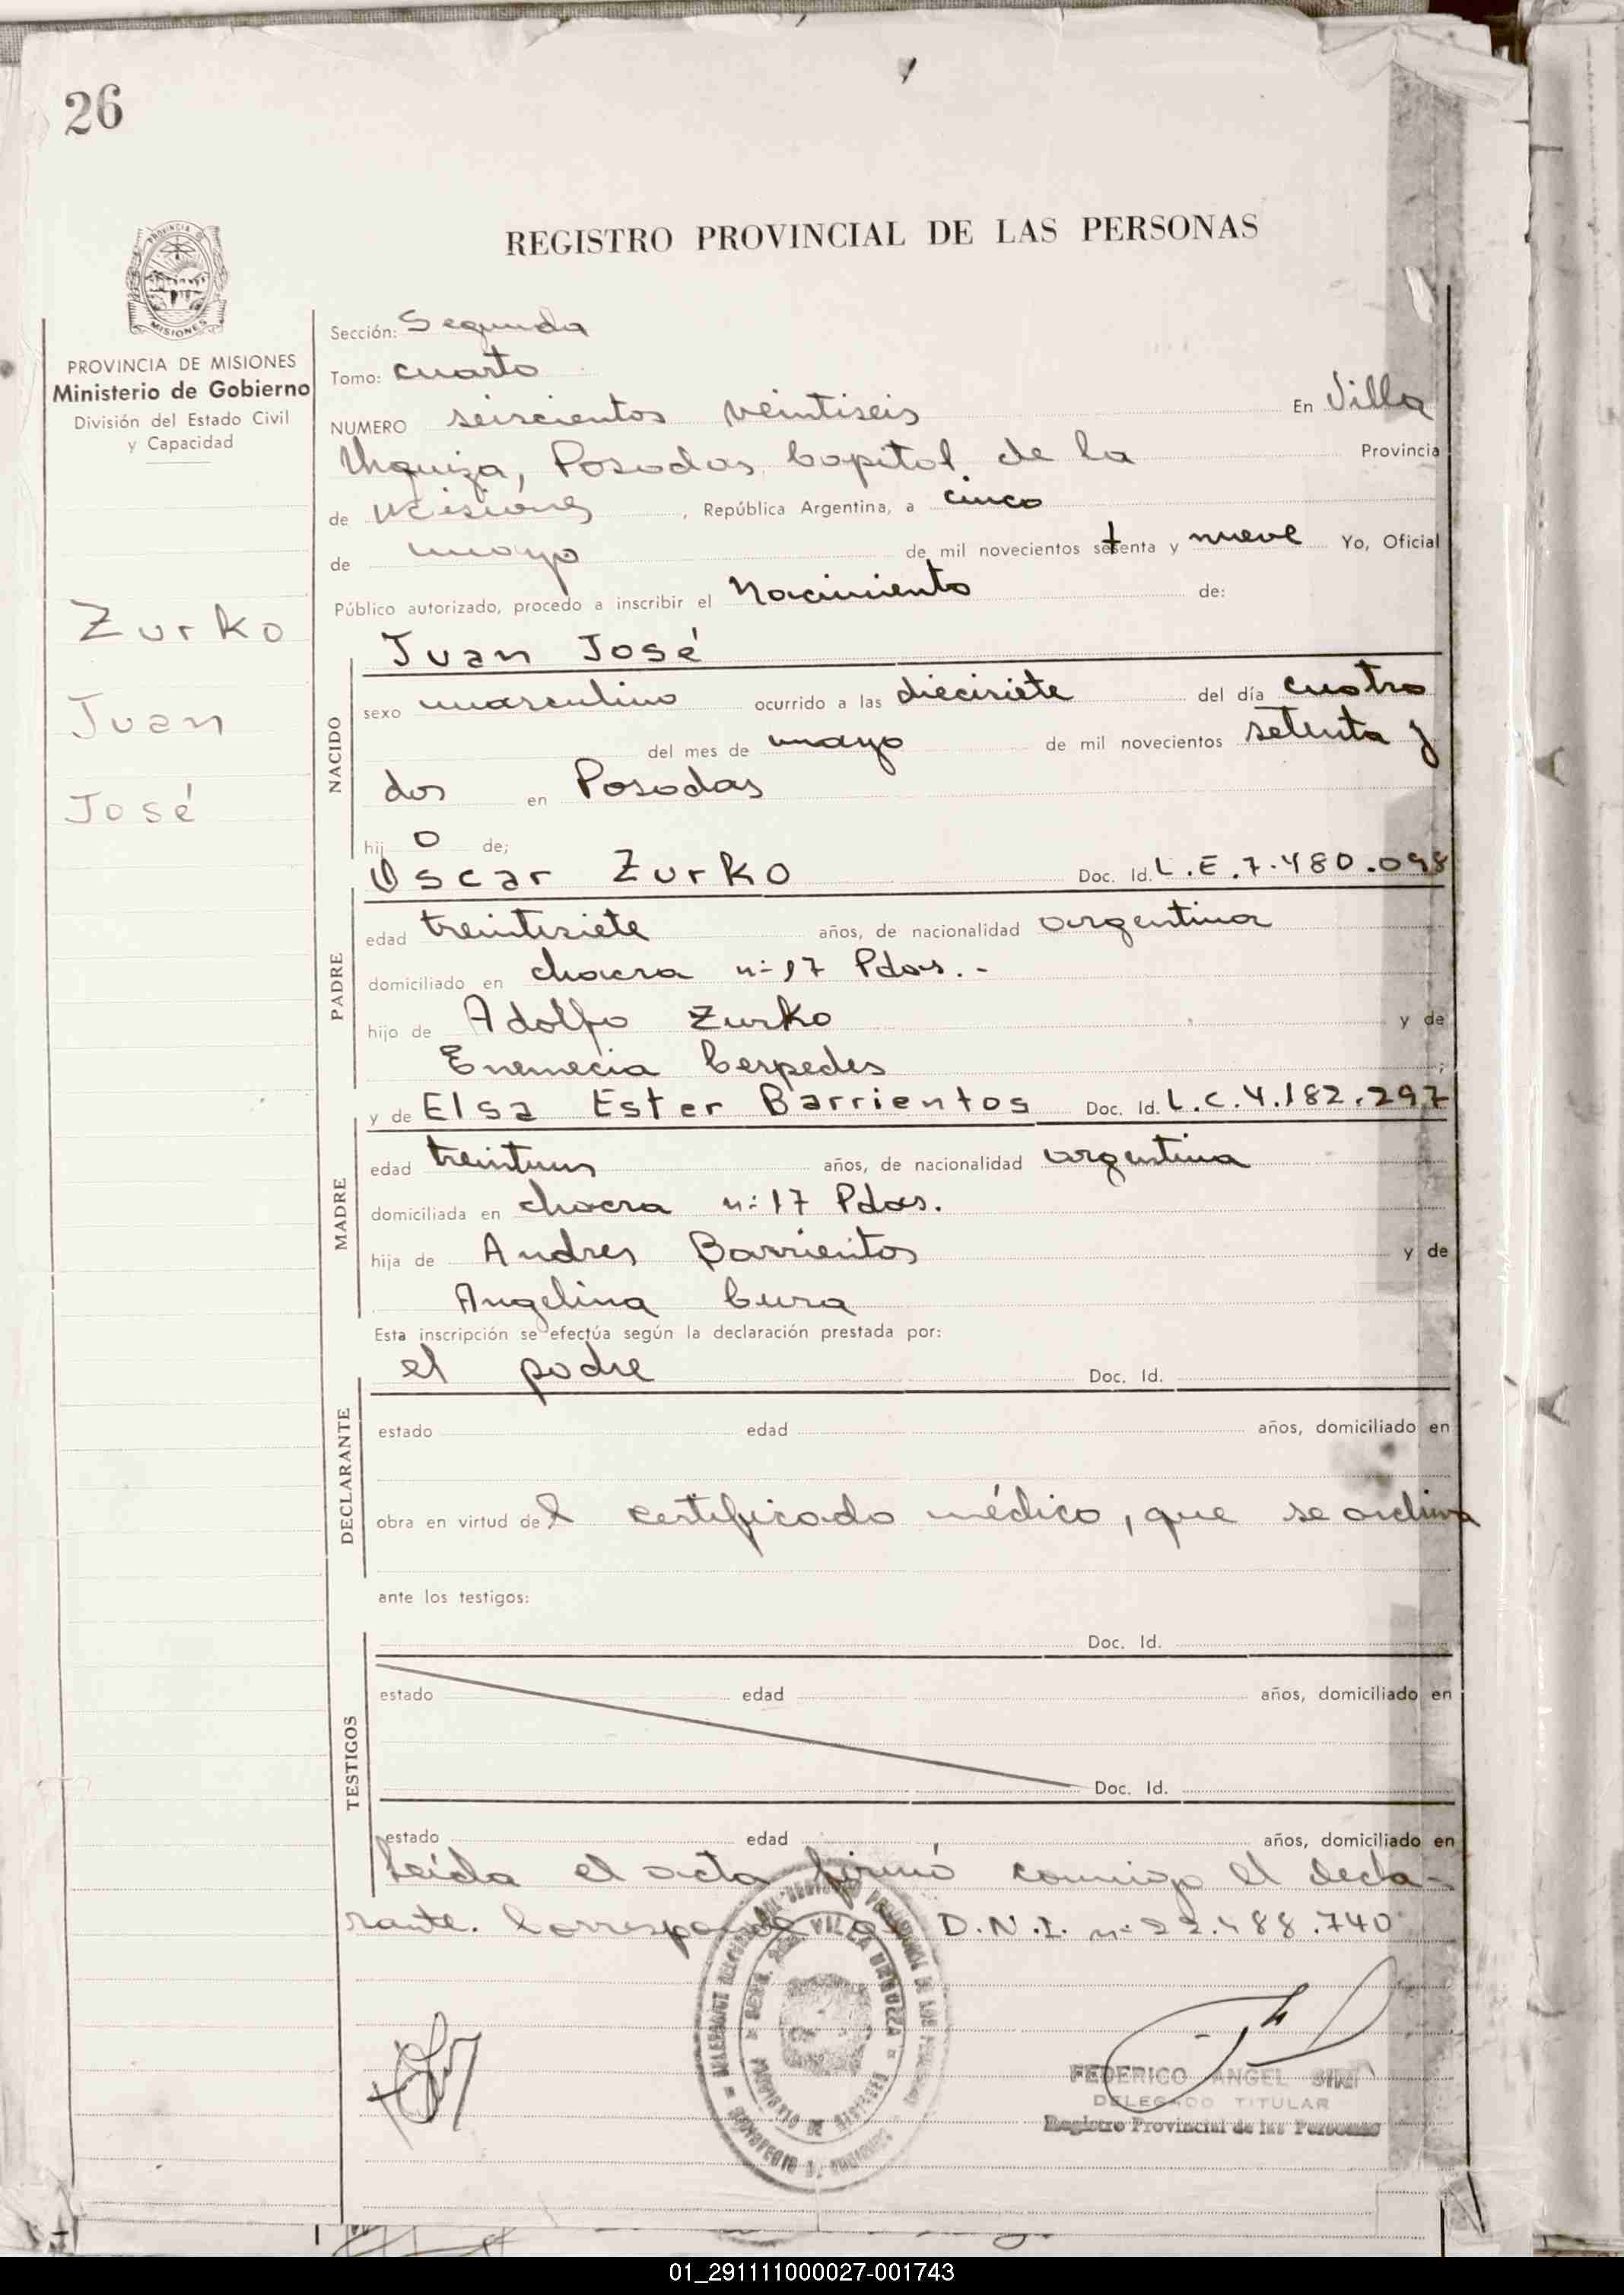 26
REGISTRO PROVINCIAL DE LAS PERSONAS
PROVINCIA DE MISIONES
Ministerio de Gobierno
División del Estado Civil
y Capacidad
Zurko
Juan
José
Sección: Segunda
Tomo: cuarto
NUMERO seiscientos veintiseis En Villa
Urquiza, Posadas Capital de la Provincia
de Misiones, República Argentina, a cinco
de mayo de mil novecientos setenta y nueve Yo, Oficial
Público autorizado, procedo a inscribir el Nacimiento de:
Juan José
NACIDO
sexo masculino ocurrido a las diecisiete del día cuatro
del mes de mayo de mil novecientos setenta y
dos en Posadas
hijo de;
Oscar Zurko Doc. Id. L.E.7.480.098
PADRE
edad treintisiete años, de nacionalidad argentina
domiciliado en chacra nº 17 Pdas.-
hijo de Adolfo Zurko y de
Enemecia Cespedes ;
y de Elsa Ester Barrientos Doc. Id. L.C.4.182.297
MADRE
edad treintuno años, de nacionalidad argentina
domiciliada en chacra nº 17 Pdas.
hija de Andres Barrientos y de
Angelina Cura
Esta inscripción se efectúa según la declaración prestada por:
el padre Doc. Id.
DECLARANTE
estado edad años, domiciliado en
obra en virtud del certificado médico, que se archiva
ante los testigos:
Doc. Id.
TESTIGOS
estado edad años, domiciliado en
Doc. Id.
estado edad años, domiciliado en
Leída el acta firmó conmigo el decla-
rante. Corresponde al D.N.I. nº 22.488.740
VILLA URQUIZA
FEDERICO ANGEL
DELEGADO TITULAR
Registro Provincial de las Personas
01_291111000027-001743